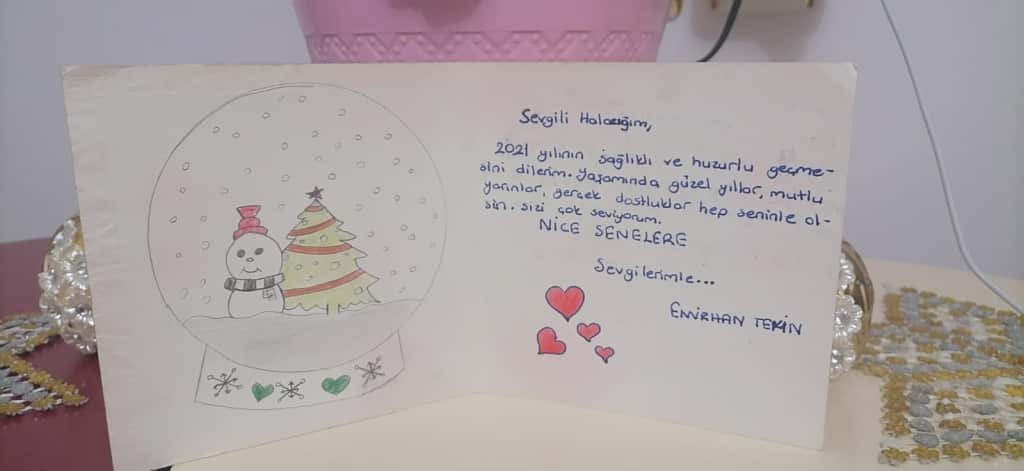 Sevgili Halacığım,
2021 yılının sağlıklı ve huzurlu geçme-
sini dilerim. Yaşamında güzel yıllar, mutlu
yarınlar, gerçek dostluklar hep seninle ol-
sun. sizi çok seviyorum.
NİCE SENELERE
Sevgilerimle...
EMİRHAN TEKİN